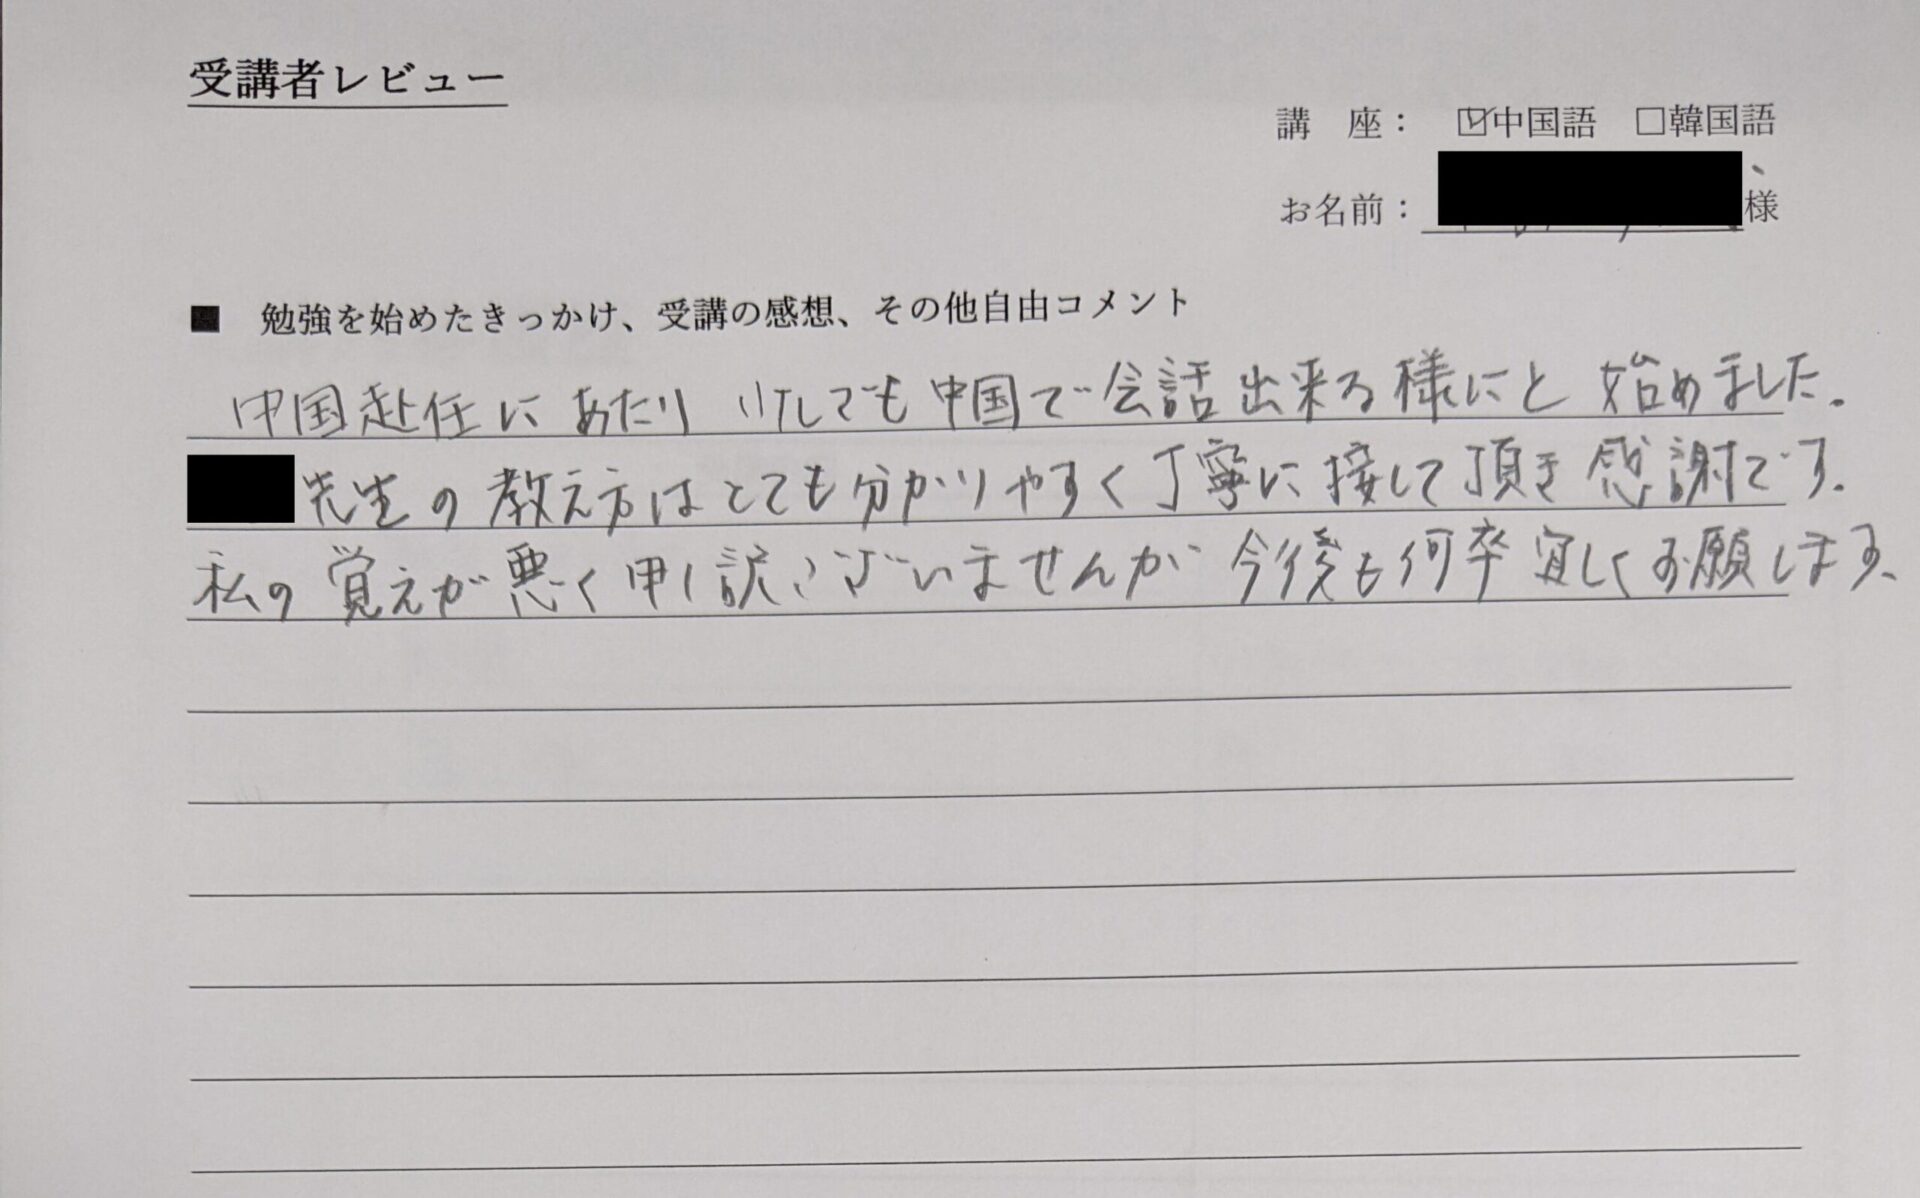 受講者レビュー
講　座： ☑中国語 □韓国語
お名前： 様
■ 勉強を始めたきっかけ、受講の感想、その他自由コメント
中国赴任にあたり 少しでも中国で会話出来る様にと 始めました。
先生の教え方はとても分かりやすく丁寧に接して頂き感謝です。
私の覚えが悪く申し訳ございませんが 今後も何卒宜しくお願します、